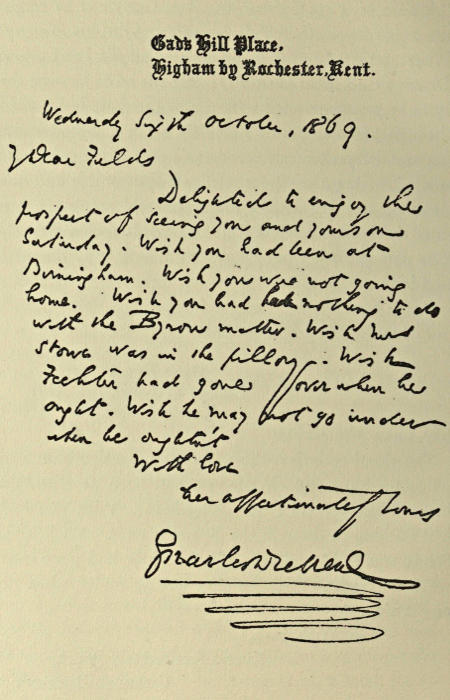 Gad's Hill Place,
Higham by Rochester, Kent.
Wednesday Sixth October, 1869.
My Dear Fields
Delighted to enjoy the
prospect of seeing you and yours on
Saturday. Wish you had been at
Birmingham. Wish you were not going
home. Wish you had had nothing to do
with the Byron matter. Wish Mrs
Stowe was in the pillory. Wish
Fechter had gone over when he
ought. Wish he may not go under
when he oughtn't
With love
Ever affectionately Yours
Charles Dickens